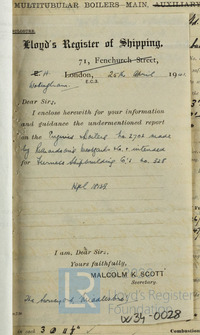 MULTITUBULAR BOILERS—MAIN, AUXILIARY
Lloyd's Register of Shipping,
71, Fenchurch Street,
London, 25th April 19
E.C.3
Dear Sir,
I enclose herewith for your information
and guidance the undermentioned report
on the Engines & Boilers No. 2702 made
by Richardsons Westgarth & Co. intended
for Furness Shipbuilding Co's No. 228
Hpl
I am, Dear Sir,
Yours faithfully,
MALCOLM K. SCOTT
Secretary.
The Surveyors, Middlesbro'
Lloyd's Register
Foundation
W34-0028
Combustion